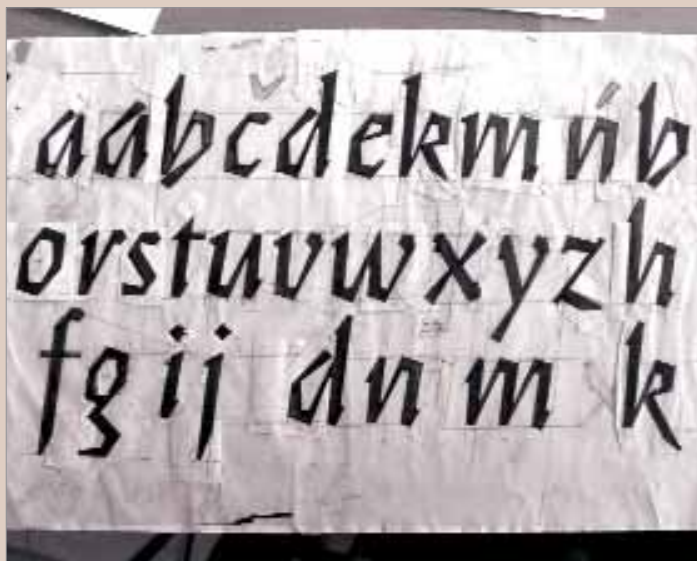 aabčdekmńb
orstuvwxyzh
fgij dn m k